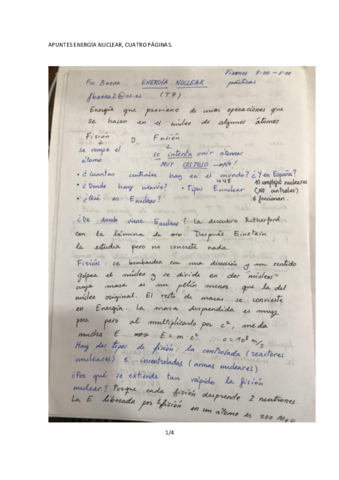 APUNTES ENERGÍA NUCLEAR, CUATRO PÁGINAS.
Viernes 9:00 - 5:00
Fis Baena ENERGÍA NUCLEAR prácticas
(T7)
Energía que proviene de unas operaciones que
se hacen en el núcleo de algunos átomos
Fisión Fusión
se rompe el se intenta unir átomos
átomo MUY COSTOSO
• ¿Cuántas centrales hay en el mundo? ¿Y en España?
448
• ¿Dónde hay uranio? • Tipos E nuclear nucleares
• ¿Qué es E nuclear? (NO centrales)
funcionan.
¿De dónde viene E nuclear? La descubre Rutherford
con la lámina de oro. Después Einstein
la estudia pero no concreta nada.
Fisión: se bombardea con una dirección y un sentido
golpea el núcleo y se divide en dos núcleos
cuya masa es un pelín menor que la del
núcleo original. El resto de masa se convierte
en Energía. La masa desprendida es muy
poca pero al multiplicarlo por c², me da
mucha E E = m · c²
Hay dos tipos de fisión: la controlada (reactores
nucleares) e incontroladas (armas nucleares)
¿Por qué se extiende tan rápido la fisión
nuclear? Porque cada fisión desprende 2 neutrones.
La E liberada por fisión en un átomo es 200 MeV
1/4